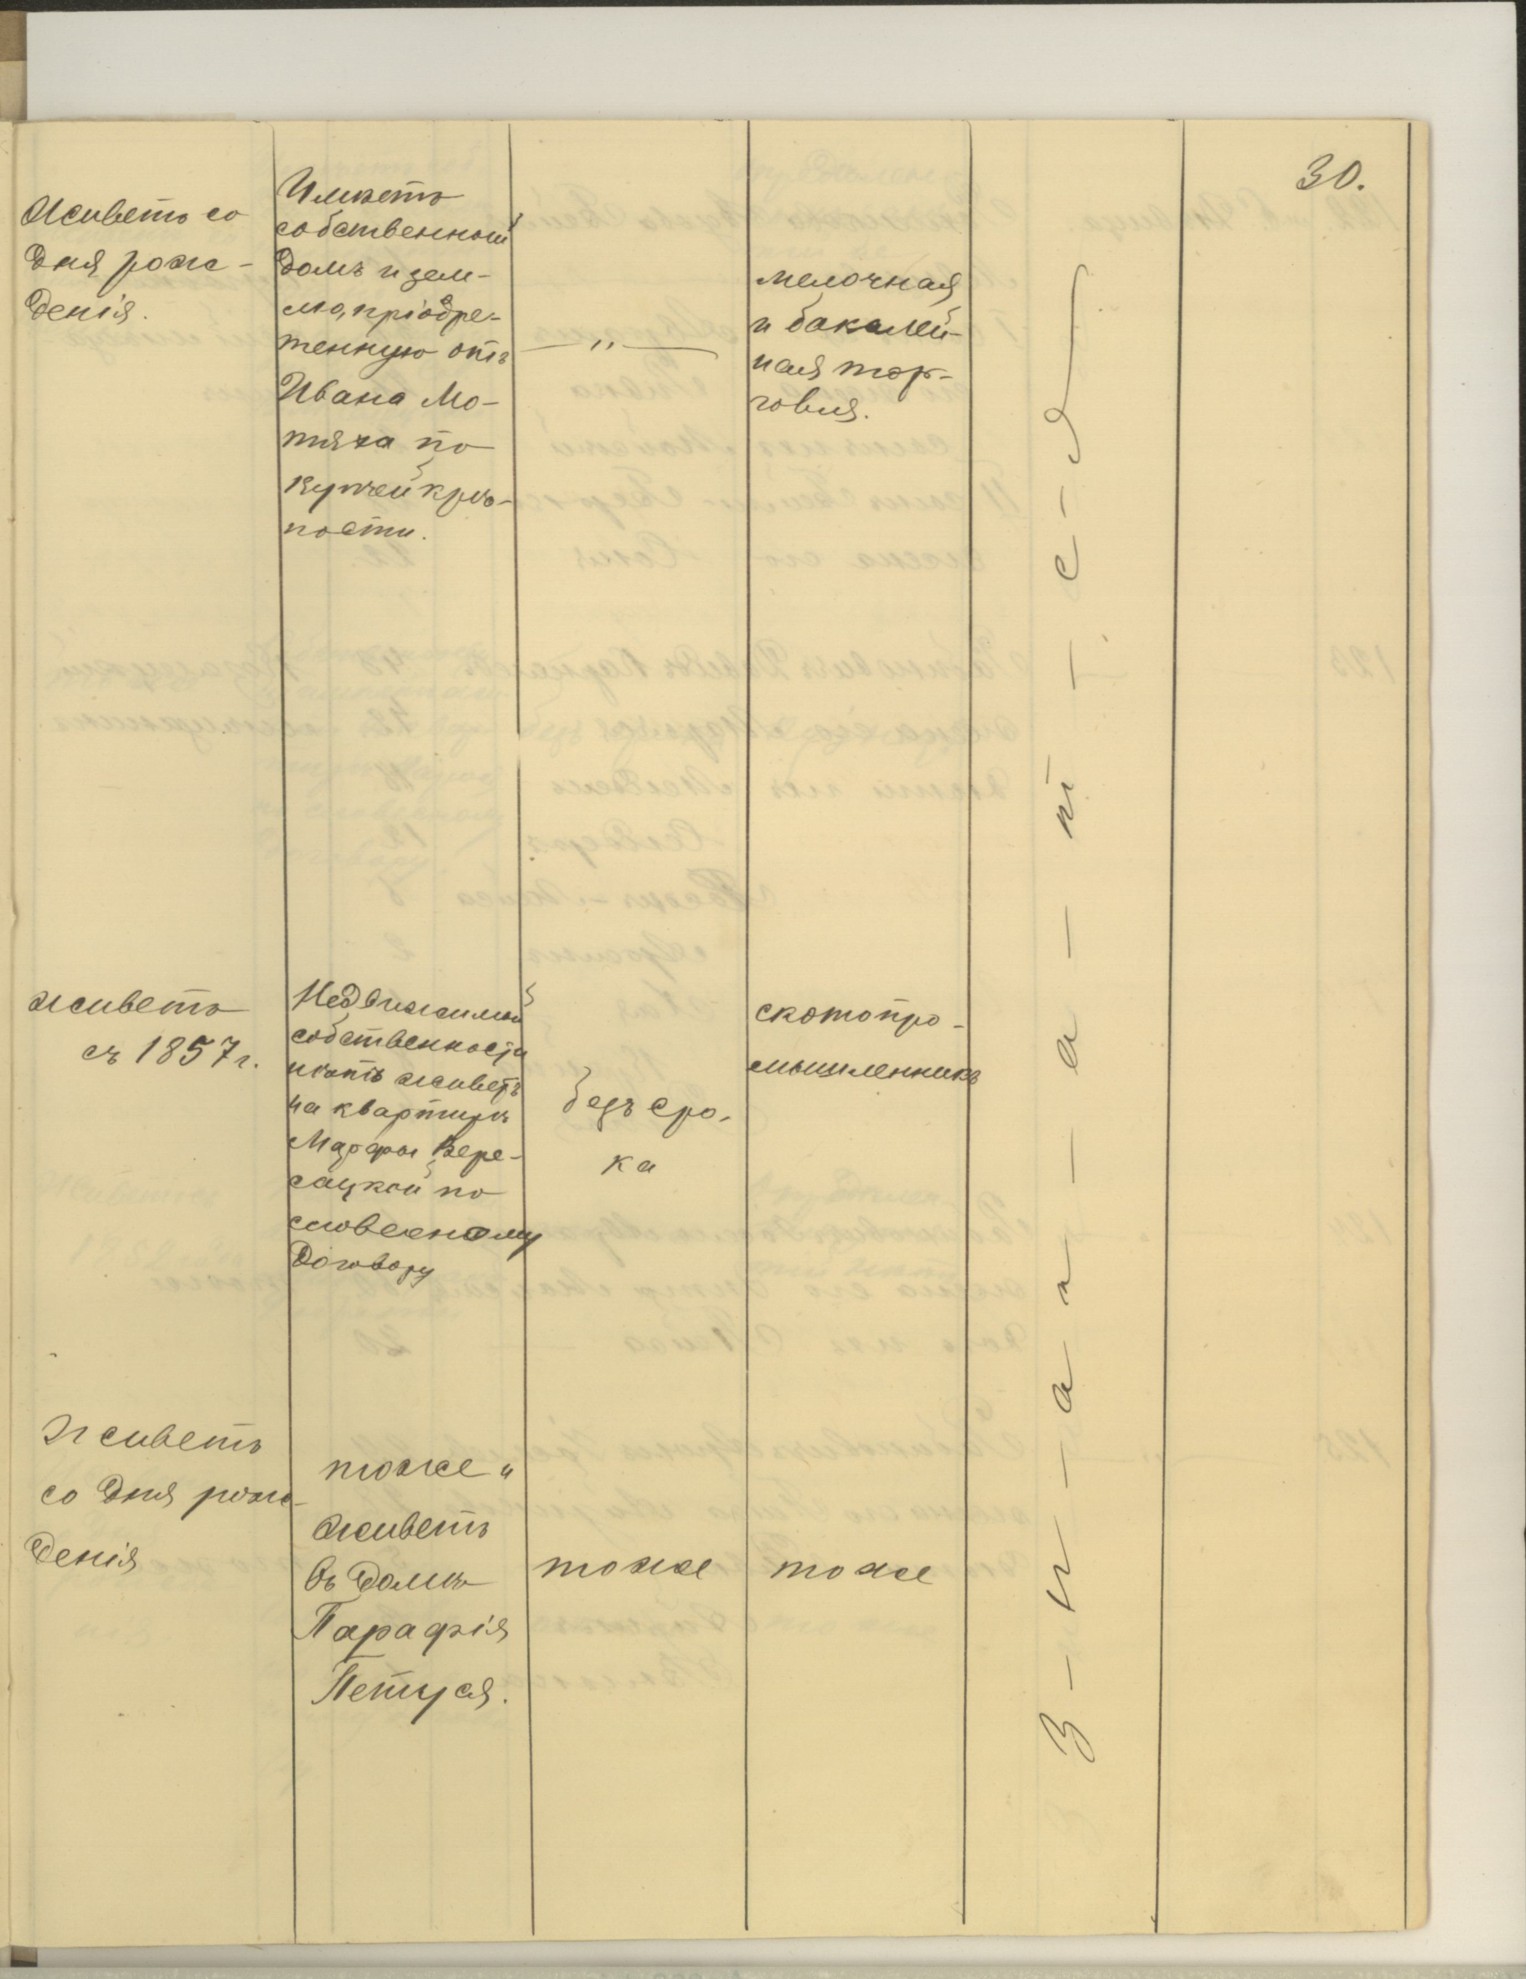 30.
Живетъ со
дня рож-
денія.
Имѣетъ
собственный
домъ и зем-
лю, пріобре-
тенную отъ
Ивана Мо-
тяха по
купчей крѣ-
пости.
— " —
мелочная
и бакалей-
ная тор-
говля.
З-н-а-л-а-т-с-я
живетъ
съ 1857 г.
Недвижимой
собственности
нѣтъ живетъ
на квартирѣ
Марфы Вере-
сацкой по
словесному
договору
безъ сро-
ка
скотопро-
мышленникъ
Живетъ
со дня рож-
денія
тоже "
живетъ
въ домѣ
Парафія
Петуся.
тоже
тоже